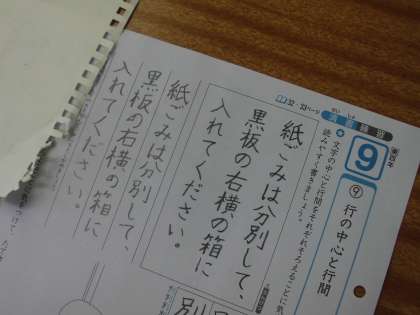 9
⑨ 行の中心と行間
32・33ページ
文字の中心と行間をそれぞれそろえることに気
読みやすく書きましょう。
紙ごみは分別して、
黒板の右横の箱に
入れてください。
紙ごみは分別して、
黒板の右横の箱に
入れてください。
別